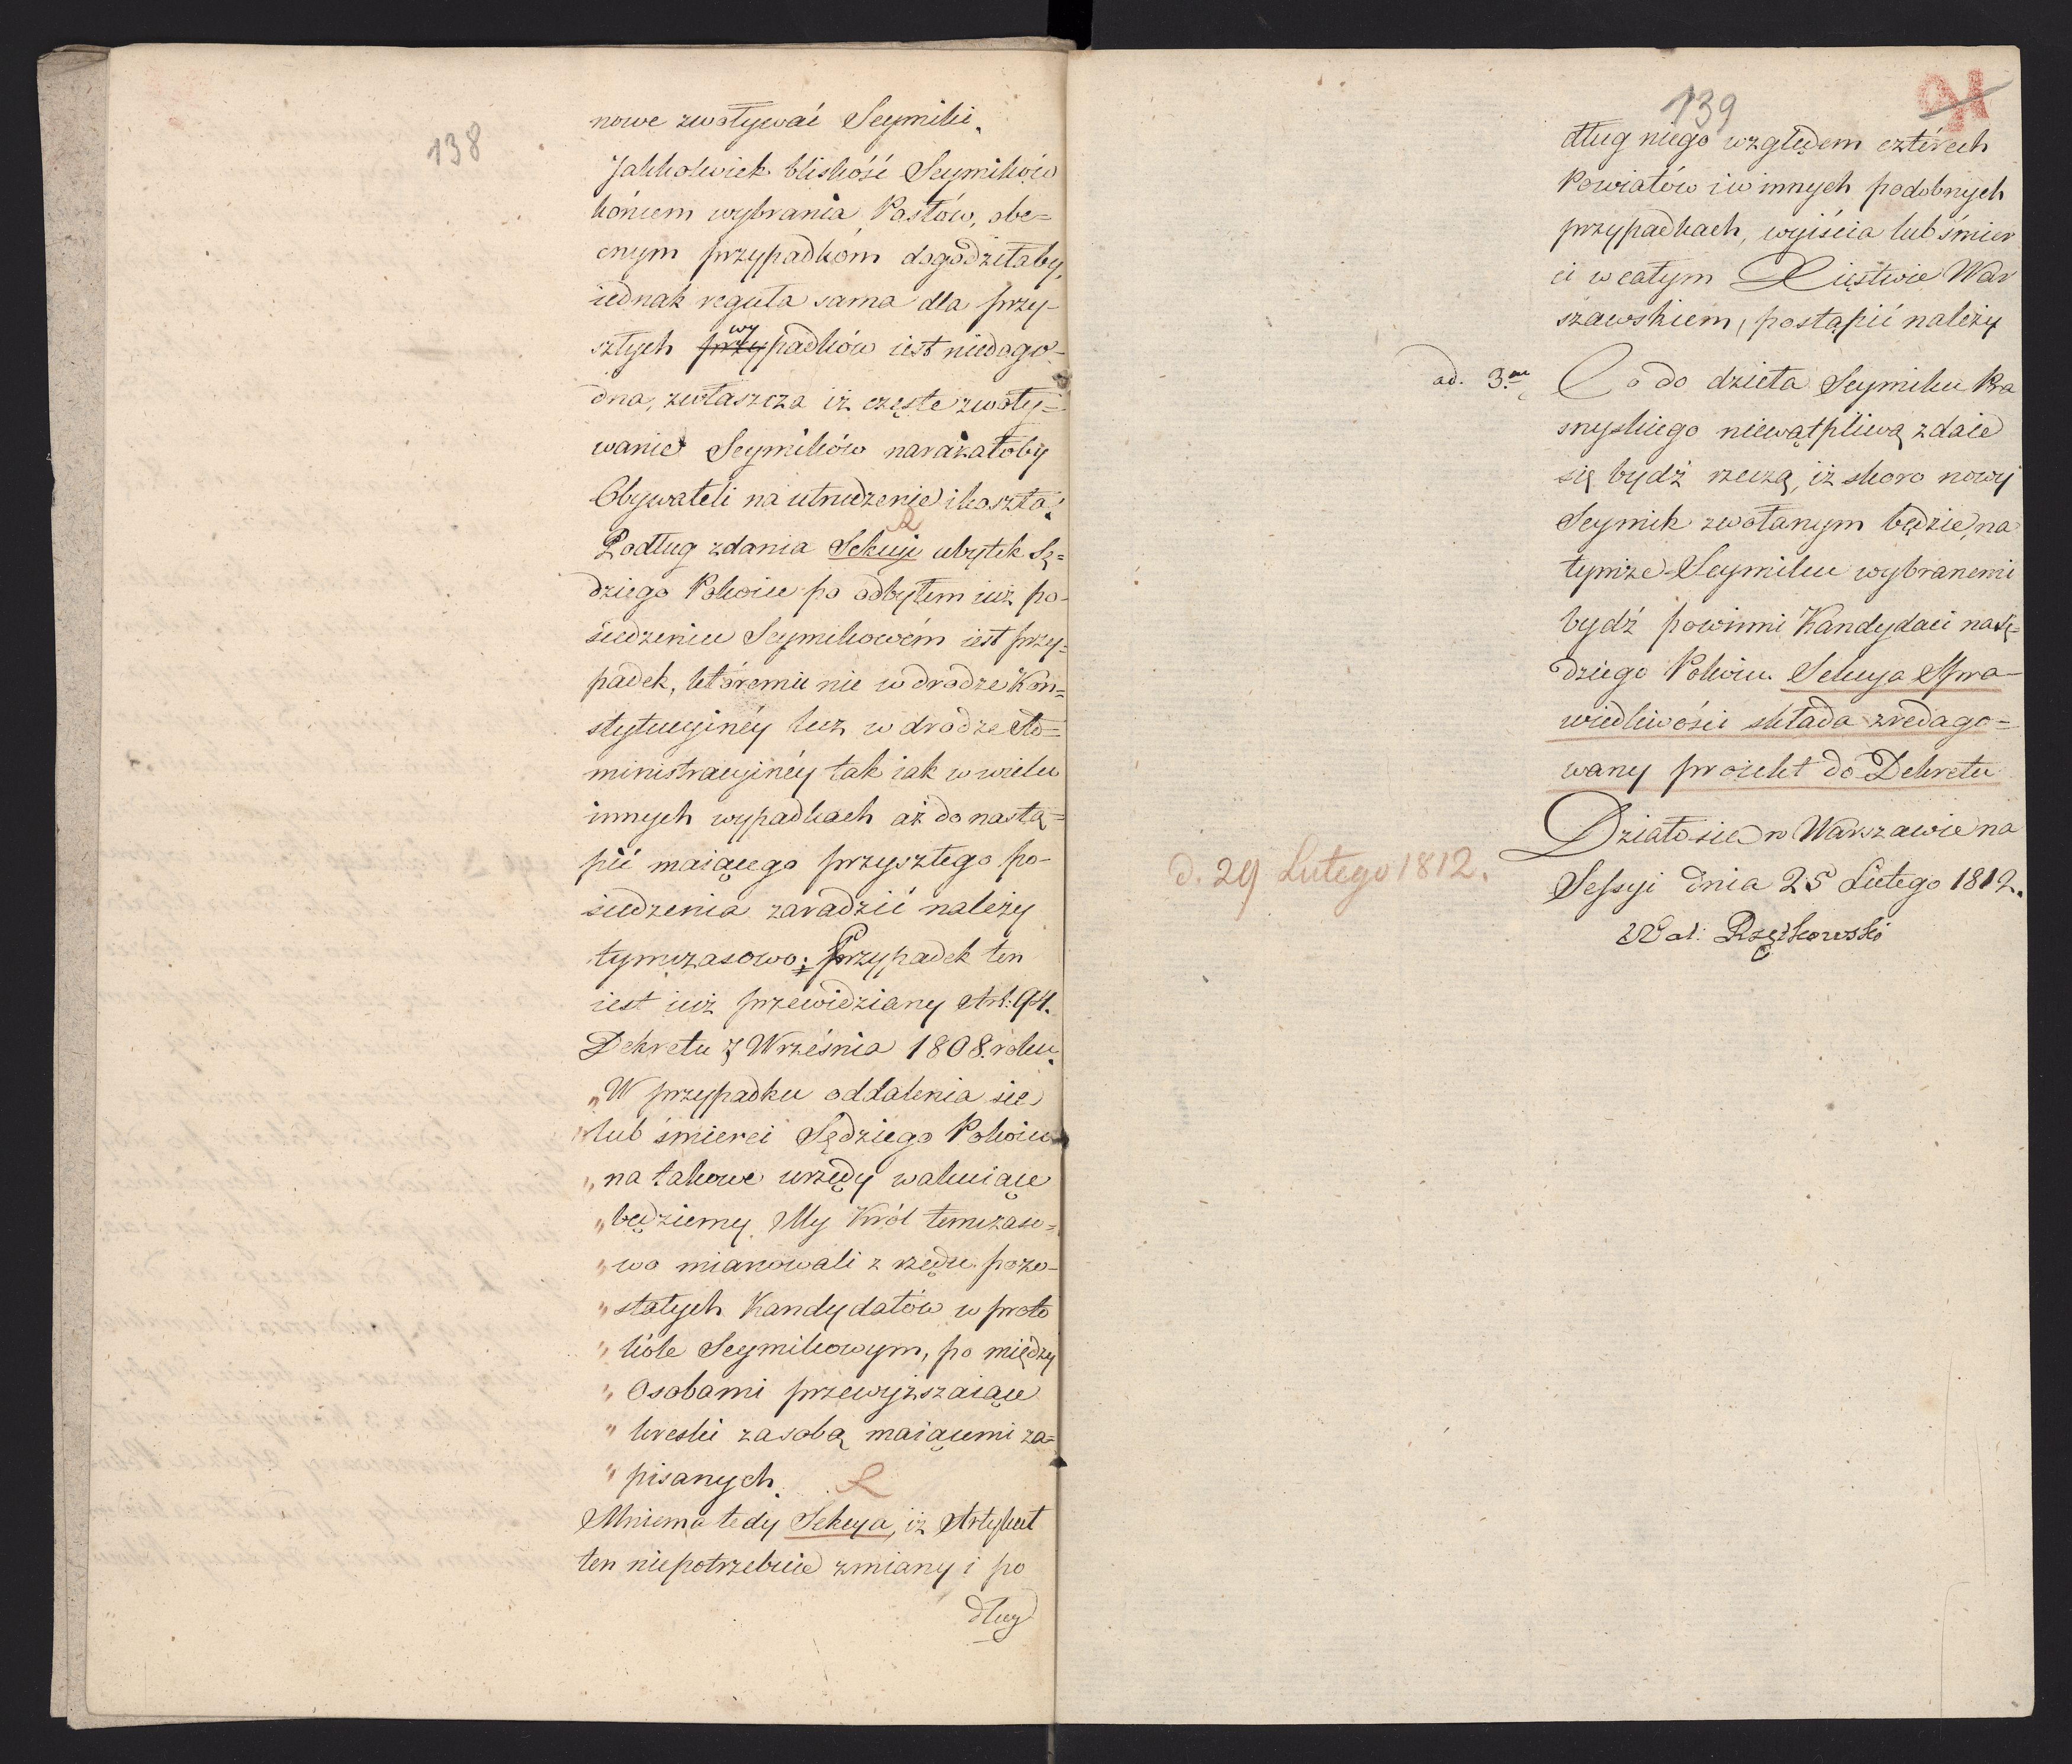 138
nowe zwoływać Seymiki.
Jakkolwiek bliskość Seymików
końcem wybrania Posłów, obe=
cnym przypadkóm dogodziłaby,
iednak reguła sama dla przy-
szłych przywypadków iest niedogo-
dna, zwłaszcza iż częste zwoły=
wanie Seymików narażałoby
Obywateli na utrudzenie i koszta.
Podług zdania Sekcyi ubytek Sę=
dziego Pokoiu po odbytem iuż po-
siedzeniu Seymikowém iest przy=
padek, któremu nie w drodze Kon=
stytucyinéy lecz w drodze Ad=
ministracyinéy tak iak w wielu
innych wypadkach aż do nastą=
pić maiącego przyszłego po-
siedzenia zaradzić należy
tymczasowo; Przypadek ten
iest iuż przewidziany Art: 94.
Dekretu 7 Września 1808. roku.
"W przypadku oddalenia się
"lub śmierci Sędziego Pokoiu
"na takowe urzędy wakuiące
"będziemy My Król temczaso=
"wo mianowali z rzędu pozo-
"stałych Kandydatów w proto
"kóle Seymikowym, po między
"Osobami przewyższaiące
"kreski za sobą maiącemi za=
"pisanych.
Mniema tedy Sekcya, iż Artykuł
ten niepotrzebuie zmiany i po
dług
139
dług niego względem cztérech
Powiatów i w innych podobnych
przypadkach, wyiścia lub śmier
ci w całym Xięstwie War
szawskiem, postąpić należy
ad. 3.um Co do dzieła Seymiku Pra
snyskiego niewątpliwą zdaie
się bydź rzeczą, iż skoro nowy
Seymik zwołanym będzie, na
tymże Seymiku wybranemi
bydź powinni Kandydaci na Sę=
dziego Pokoiu. Sekcya Spra-
wiedliwości składa zredago=
wany proiekt do Dekretu
Działo się w Warszawie na
Sessyi dnia 25 Lutego 1812.
d. 29 Lutego 1812.
Wal: Rzętkowski